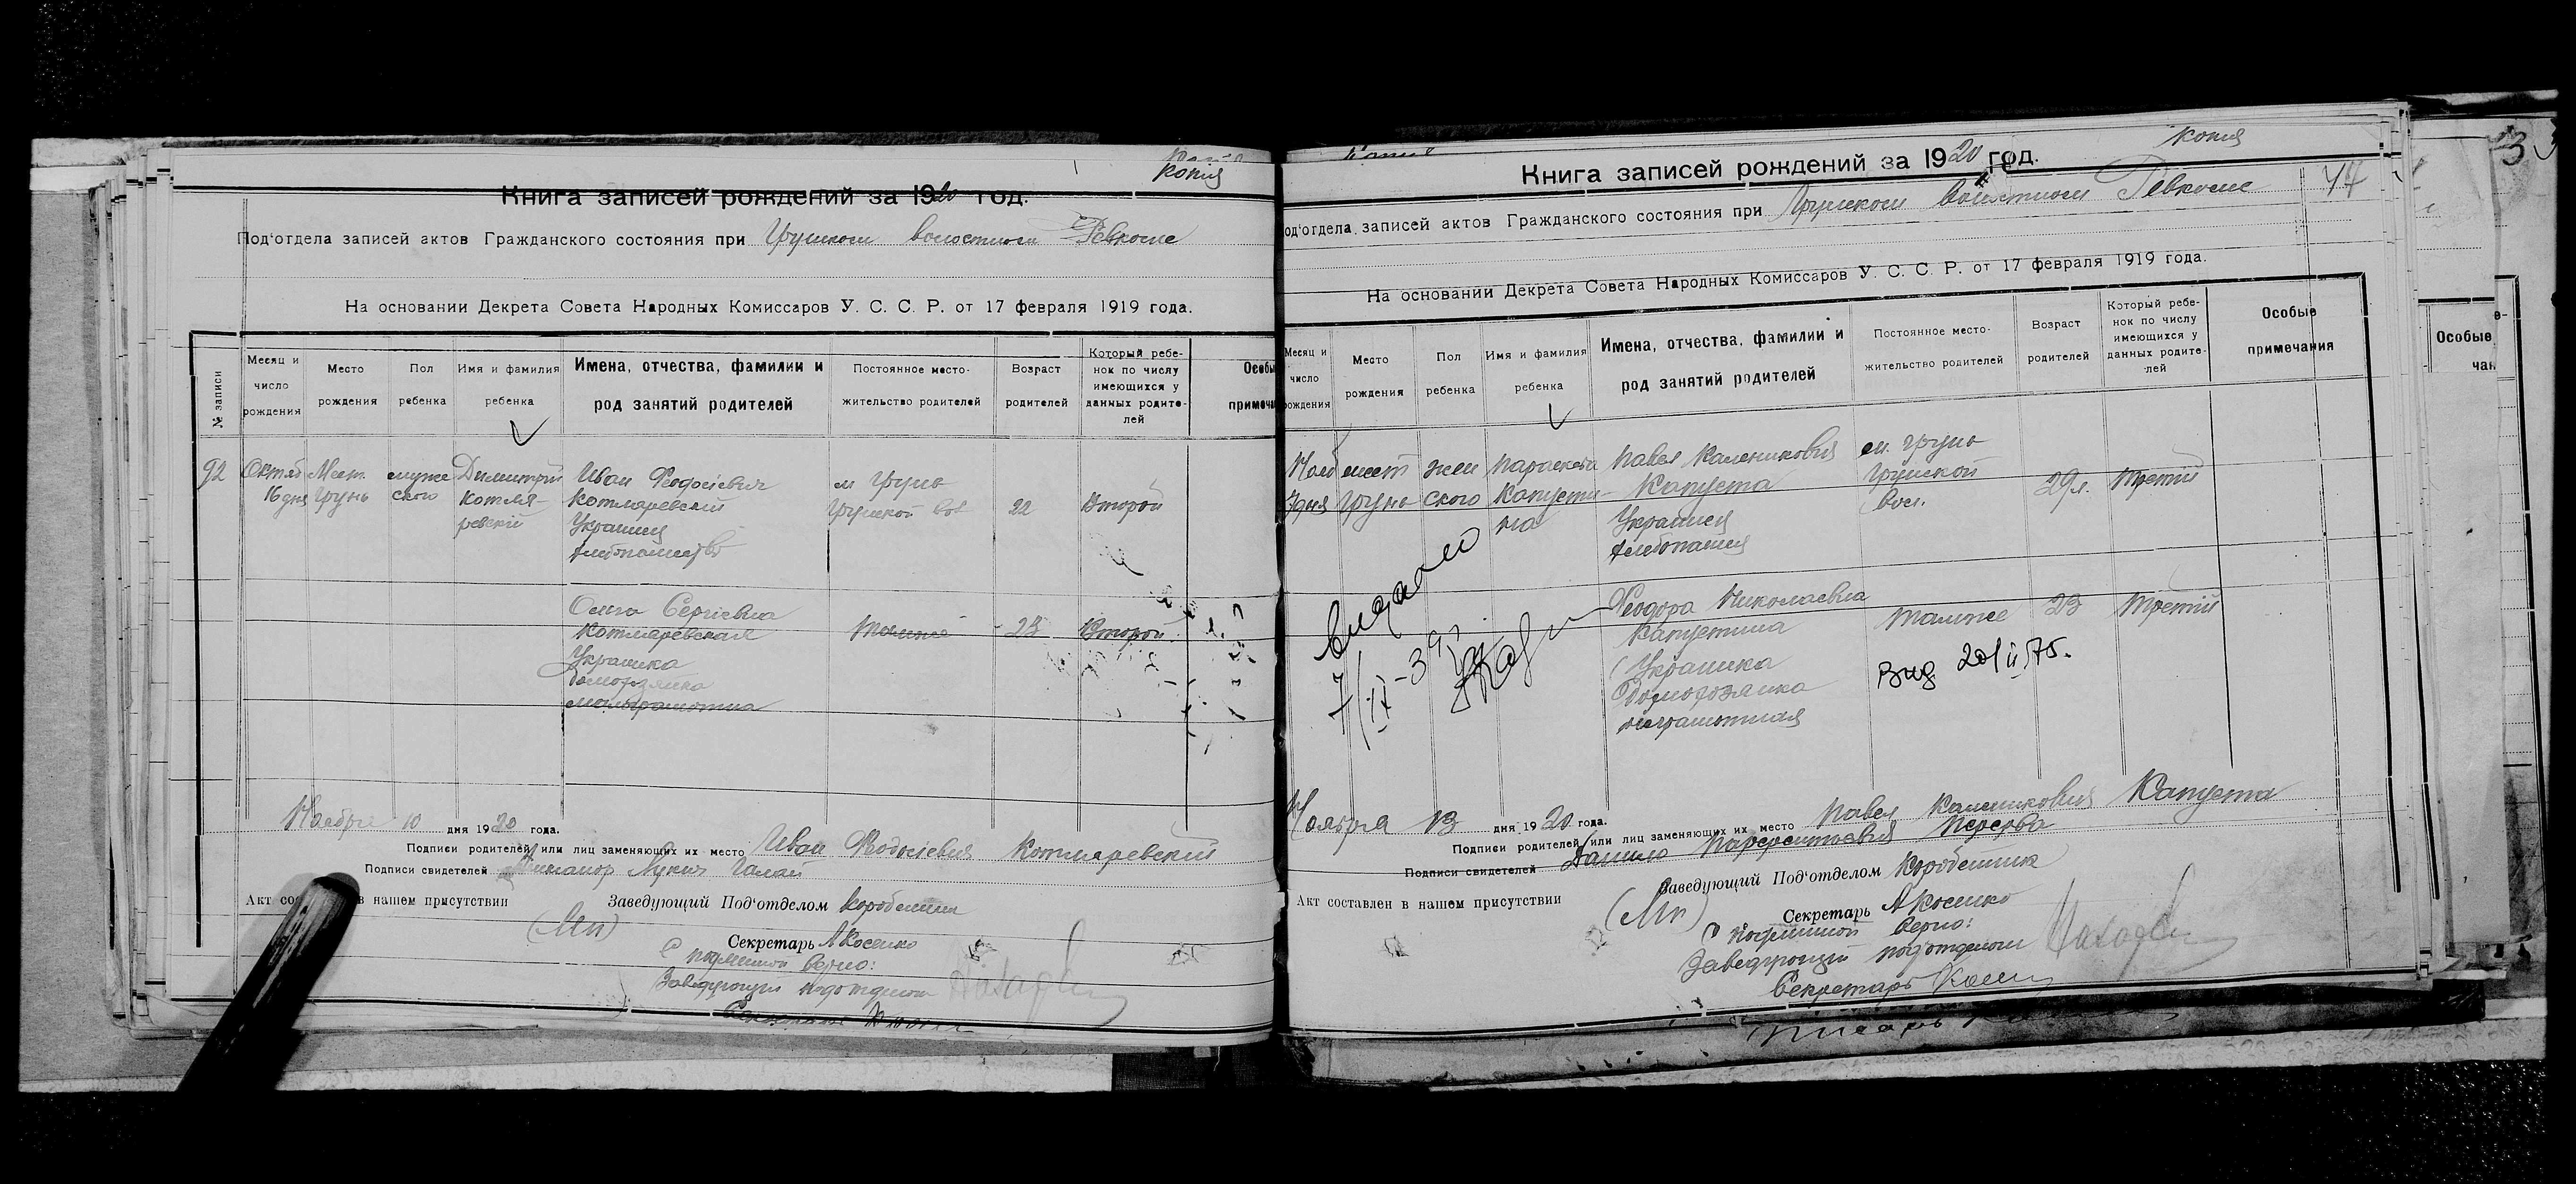 Копия
Книга записей рождений за 1920 год.
Под'отдела записей актов Гражданского состояния при Грунском волостном Ревкоме
На основании Декрета Совета Народных Комиссаров У. С. С. Р. от 17 февраля 1919 года.
№ записи
Месяц и число рождения
Место рождения
Пол ребенка
Имя и фамилия ребенка
Имена, отчества, фамилии и род занятий родителей
Постоянное место-жительство родителей
Возраст родителей
Который ребе-нок по числу имеющихся у данных родите-лей
Особы
примеча
92
Октяб 16 дня
Мест. Грунь
мужс ского
Димитрий Котля-ревскій
Иван Феодосіевич
Котляревский
Украинец
м Грунь
Грунской вол
22
Второй
Ольга Сергіевна
Котляревская
Украинка
домохозяйка
малограмотна
тамже
23
Второй
Ноября 10 дня 1920 года.
Подписи родителей или лиц заменяющих их место Иван Феодосіевич Котляревский
Подписи свидетелей Никанор Лукич Галай
Акт со в нашем присутствии
Заведующий Под'отделом Коробешник
(Мп)
Секретарь А Косенко
С подлинной верно:
Заведующий подотделом
Копия
Книга записей рождений за 1920 год.
44
од'отдела записей актов Гражданского состояния при Грунском волостном Ревкоме
На основании Декрета Совета Народных Комиссаров У. С. С. Р. от 17 февраля 1919 года.
Месяц и число рождения
Место рождения
Пол ребенка
Имя и фамилия ребенка
Имена, отчества, фамилии и род занятий родителей
Постоянное место-жительство родителей
Возраст родителей
Который ребе-нок по числу имеющихся у данных родите-лей
Особые примечания
Нояб
мест Грунь
жен ского
Параскева Капусти-на
Павел Каленикович
Капуста
Украинец
хлебопашец
м. Грунь
Грунской
вол.
29 л.
Третий
Феодора Николаевна
Капустина
Украинка
домохозяика
неграмотная
тамже
23
Третій
Вид 20/II 75.
Ноября 13 дня 1920 года.
Подписи родителей или лиц заменяющих их место Павел Каленикович Капуста
Подписи свидетелей Данило
Акт составлен в нашем присутствии
Заведующий Под'отделом Коробешник
(Мп)
Секретарь А Косенко
С подлинной верно:
Заведующий подотделом
Секретарь
Особые